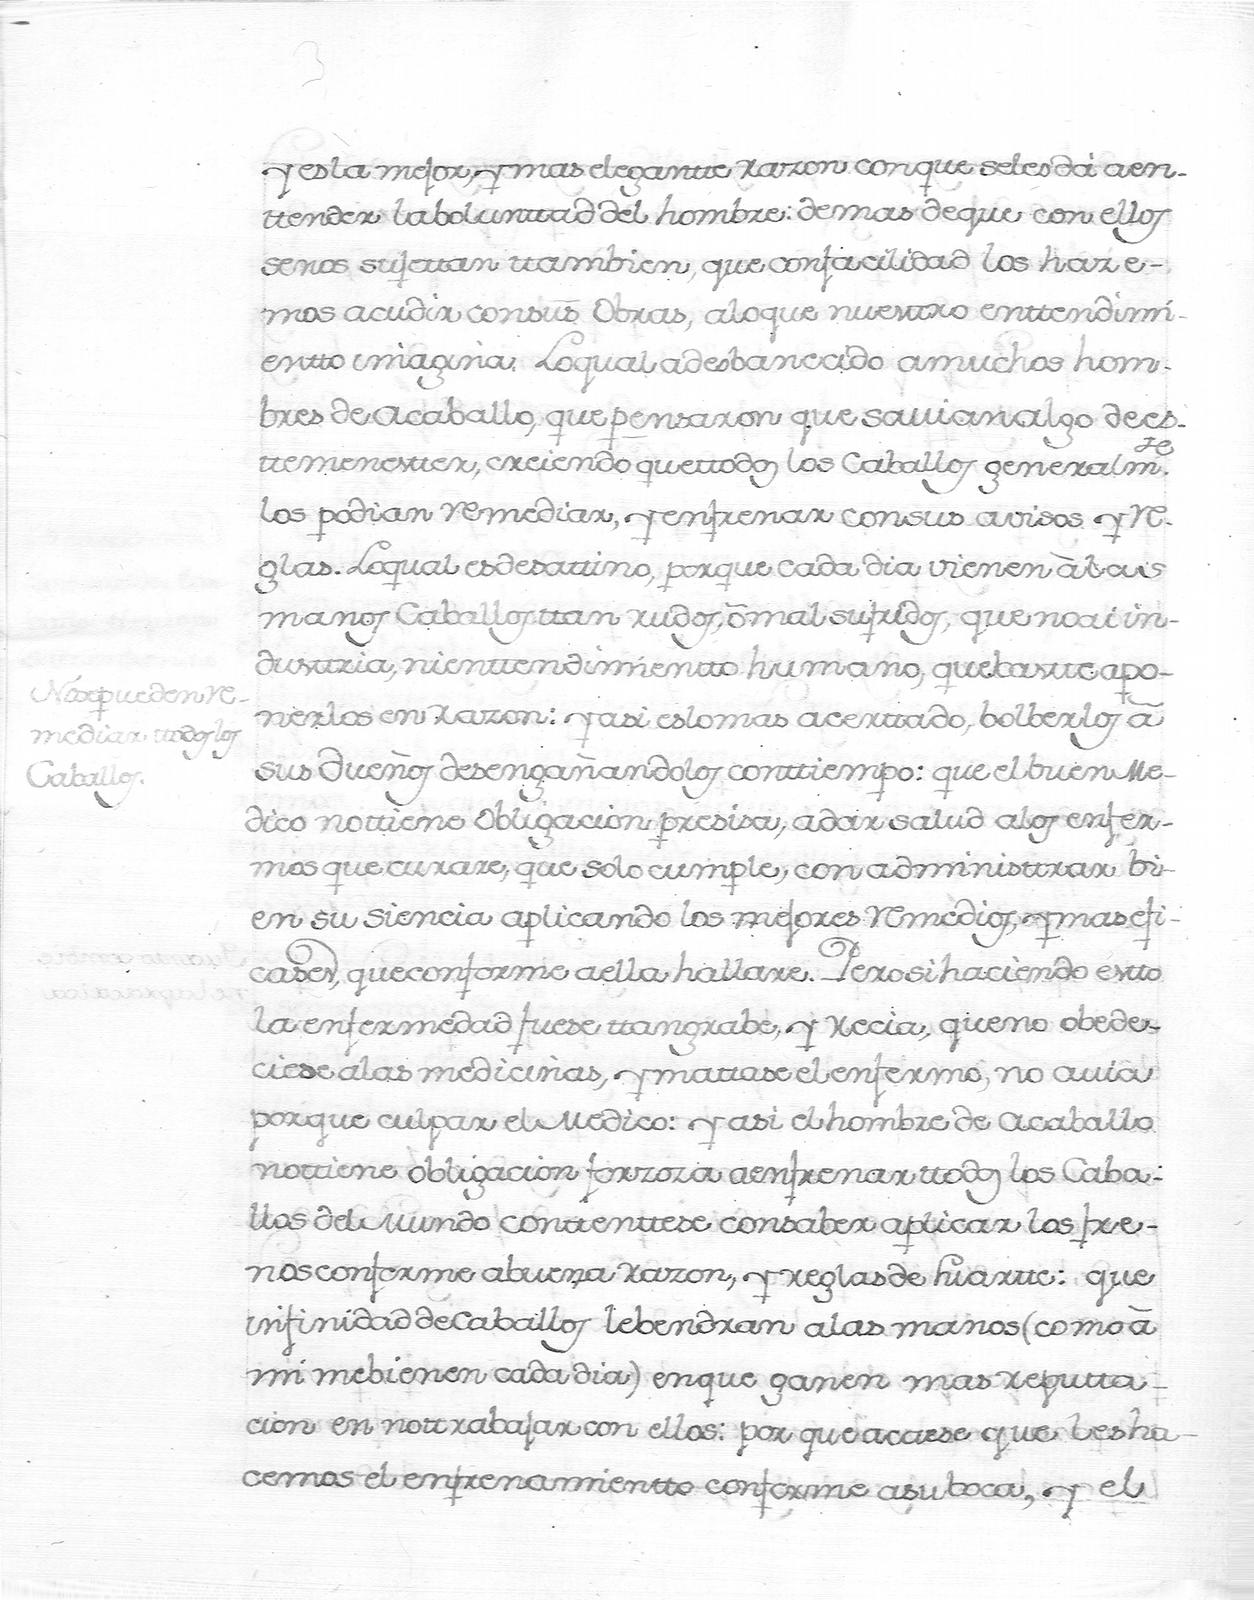 y es la mejor, y mas elegantte razon con que seles dá a en-
ttender la bolunttad del hombre: demas de que con ellos
senos sujettan ttambien, que con facilidad los haze-
mos acudir con sus Obras, a lo que nuesttro enttendimi-
entto imagina. Lo qual a desbanecido a muchos hom-
bres de acaballo, que pensaron que savian algo de es-
tte menestter, creiendo que ttodos los Caballos generalm.te
los podian remediar, y enfrenar con sus avisos y re-
glas. Lo qual es desattino, porque cada dia vienen à las
manos Caballos ttan rudos, ò mal sufridos, que no ai in-
dusttria, ni enttendimientto humano, que bastte a po-
nerlos en razon: y asi es lo mas acerttado, bolberlos à
sus dueños desengañandolos con ttiempo: que el buen Me-
dico no ttiene Obligacion presisa, a dar salud a los enfer-
mos que curare, que solo cumple, con administtrar bi-
en su siencia aplicando los mejores remedios, y mas efi-
cases, que conforme a ella hallare. Pero si haciendo estto
la enfermedad fuese ttan grabe, y recia, que no obede-
ciese a las medicinas, y mattase el enfermo, no avia
porque culpar el Medico: y asi el hombre de acaballo
no ttiene obligacion forzoza a enfrenar ttodos los Caba:
llos del Mundo conttenttese con saber aplicar los fre-
nos conforme a buena razon, y reglas de hiartte: que
infinidad de Caballos le bendran a las manos (como à
mi me bienen cada dia) en que ganen mas reputta-
cion en no ttrabajar con ellos: por que acaese que les ha-
cemos el enfrenamientto conforme a su boca, y el
No se pueden re-
mediar ttodos los
Caballos.